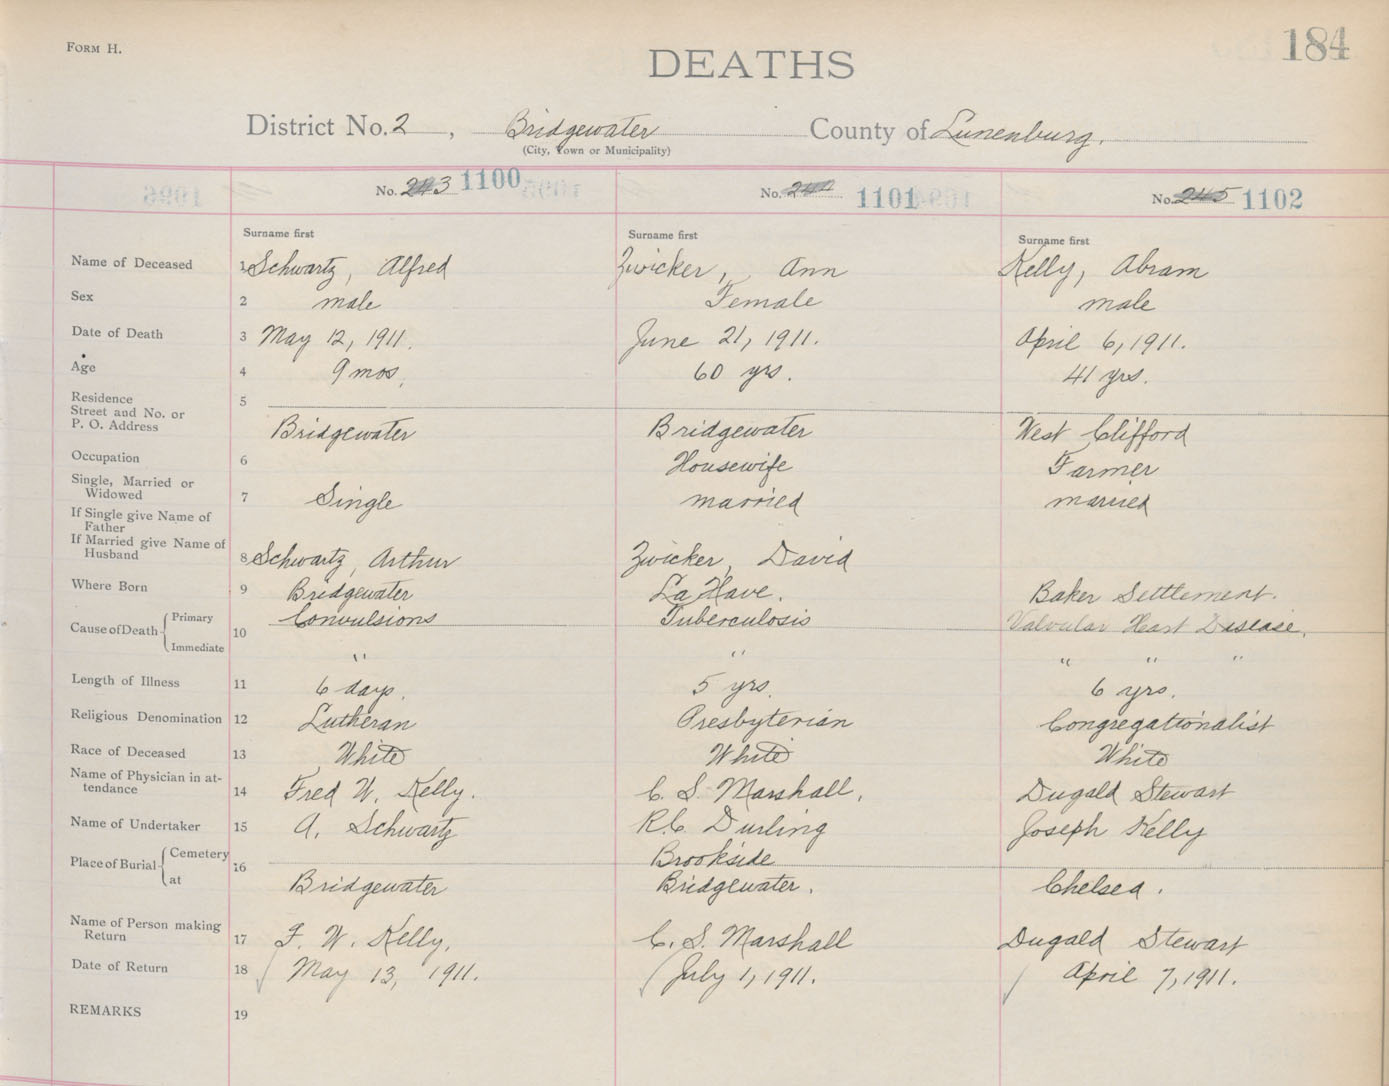 FORM H.
184
DEATHS
District No. 2, Bridgewater County of Lunenburg.
(City, Town or Municipality)
No. 243 1100 No. 244 1101 No. 245 1102
Surname first Surname first Surname first
Name of Deceased 1 Schwartz, Alfred Zwicker, Ann Kelly, Abram
Sex 2 male Female male
Date of Death 3 May 12, 1911. June 21, 1911. April 6, 1911.
Age 4 9 mos. 60 yrs. 41 yrs.
Residence 5
Street and No. or
P. O. Address Bridgewater Bridgewater West Clifford
Occupation 6 Housewife Farmer
Single, Married or
Widowed 7 Single married married
If Single give Name of
Father
If Married give Name of
Husband 8 Schwartz, Arthur Zwicker, David
Where Born 9 Bridgewater La Have. Baker Settlement.
Cause of Death Primary 10 Convulsions Tuberculosis Valvular Heart Disease.
Immediate " " " " "
Length of Illness 11 6 days. 5 yrs. 6 yrs.
Religious Denomination 12 Lutheran Presbyterian Congregationalist
Race of Deceased 13 White White White
Name of Physician in at-
tendance 14 Fred W. Kelly. C. S. Marshall. Dugald Stewart
Name of Undertaker 15 A. Schwartz R.C. Durling Joseph Kelly
Place of Burial Cemetery 16 Brookside
at Bridgewater Bridgewater. Chelsea.
Name of Person making
Return 17 F. W. Kelly. C. S. Marshall Dugald Stewart
Date of Return 18 May 13, 1911. July 1, 1911. April 7, 1911.
REMARKS 19